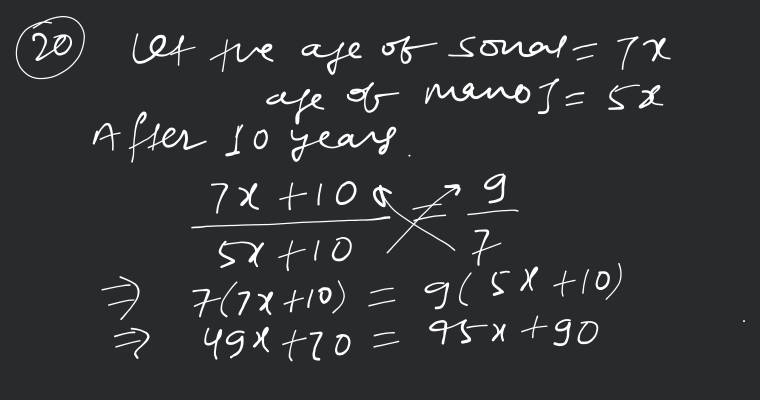 20 Let the age of sonal = 7x
age of manoj = 5x
After 10 years.
7x + 10 = 9
5x + 10 7
⇒ 7(7x+10) = 9(5x+10)
⇒ 49x+70 = 45x+90